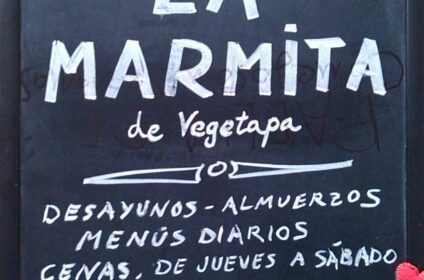 LA
MARMiTA
de Vegetapa
DESAYUNOS - ALMUERZOS
MENÚS DIARIOS
CENAS, DE JUEVES A SÁBADO